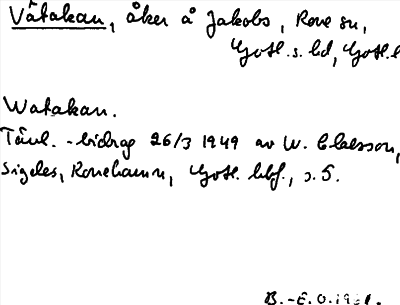 Våtakan, åker å Jakobs, Rone sn,
Gotl. s. hd, Gotl. l
Watakan.
Tävl. -bidrag 26/3 1949 av W. Claesson,
Sigdes, Ronehamn, Gotl. , s. 5.
B.-E.O. 19